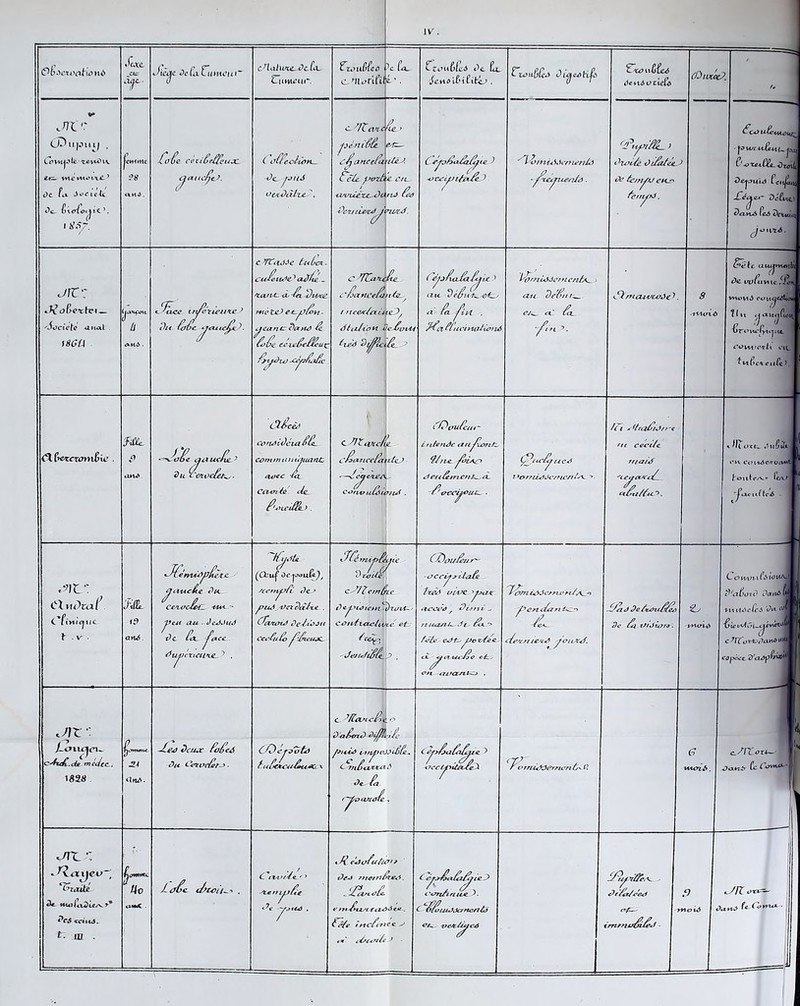 IV.
Observations
Sexe et âge.
Siège de la Tumeur
Nature de la Tumeur.
Troubles de la Motilité.
Troubles de la Sensibilité.
Troubles Digestifs
Troubles sensoriels
Durée.
Mr Dupuy,
Compte rendu
et mémoires
de la Société
de Biologie.
1857.
femme
28
ans.
Lobe cérébelleux
gauche.
Collection
de pus
verdâtre.
Marche
pénible et
chancelante.
Tête portée en
arrière dans les
derniers jours.
Céphalalgie
occipitale
Vomissements
fréquents.
Pupille
droite dilatée
de temps en
temps.
Écoulement
purulent par
l'oreille droite
depuis l'enfance
Léger Délire
dans les derniers
jours.
Mr
Robertet
Société anat.
1861
garçon
4
ans.
Face inférieure
du lobe gauche.
Masse tuber-
culeuse adhé-
rant à la dure
mère et plon-
geant dans le
lobe cérébelleux
hydrocéphalie
Marche
chancelante,
incertaine,
station debout
très difficile
Céphalalgie
au Début et
à la fin.
Hallucinations
Vomissements
au Début
et à la
fin.
Amaurose.
8
mois
Tête augmentée
de volume
Un ganglion
bronchique
converti en
tubercule.
Abercrombie.
Fille
9
ans
Lobe gauche
du Cervelet.
Abcès
considérable
communiquant
avec la
cavité de
l'oreille.
Marche
chancelante
Légères
convulsions.
Douleur
intense au front
Une fois
seulement à
l'occiput.
Quelques
vomissements.
Ni strabisme
ni cécité
mais
regard
abattu.
Mort subite
en conservant
toutes les
facultés.
Mr
Andral.
Clinique
t. v.
Fille
19
ans.
Hémisphère
gauche du
cervelet un
peu au-dessus
de la face
supérieure.
Kyste
(Œuf de poule),
rempli de
pus verdâtre.
Parois de tissu
cellulo fibreux
Hémiplégie
droite
Membre
contracturé et
très
sensible.
Douleur
occipitale
très vive par
accès, Dimi-
nuant. Si la
tête est portée
à gauche et
en avant.
Vomissements
pendant
les
derniers jours.
Pas de troubles
de la vision.
2
mois
Convulsions
d'abord dans les
muscles du
bientôt
Mort dans une
espèce d'asphyxie
Mr
Louget
Arch. de médec.
1828
homme
21
ans.
Les deux lobes
du Cervelet.
Dépôts
tuberculeux
Marche
d'abord difficile
puis impossible.
Embarras
de la
parole.
Céphalalgie
occipitale
Vomissements.
6
mois.
Mort
dans le Coma
Mr
Rayer,
Traité
de maladies
des reins.
t. III.
homme
40
ans.
Lobe droit.
Cavité
remplie
de pus.
Résolution
des membres.
Parole
embarrassée.
Tête inclinée
à droite
Céphalalgie
continue.
Eblouissements
et vertiges
Pupilles
dilatées
et
immobiles.
9
mois
Mort
dans le Coma.